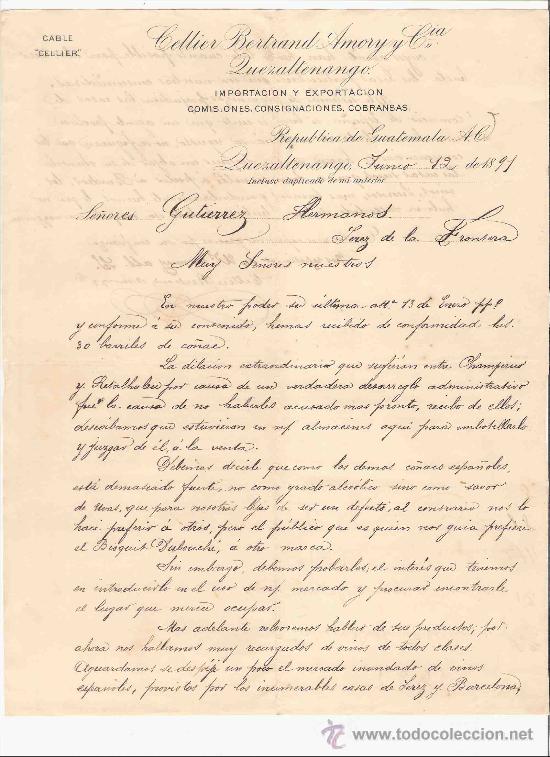 CABLE
"CELLIER"
Cellier Bertrand Amory y Cía
Quezaltenango.
IMPORTACION Y EXPORTACION
COMISIONES, CONSIGNACIONES, COBRANSAS.
Republica de Guatemala A.C.
Quezaltenango, Junio 12 de 1891
Incluso duplicado de mi anterior
SEÑORES Gutierrez Hermanos
Jerez de la Frontera
Muy Señores nuestros
En nuestro poder su última att.ª 13 de Enero pp.º
y conforme á su contenido, hemos recibido de conformidad los
30 barriles de coñac.
La dilacion extraordinaria que sufrían entre Champerico
y Retalhuleu por causa de un verdadero desarreglo administrativo
fué la causa de no haberles acusado mas pronto, recibo de ellos;
deseabamos que estuviesen en n/ almacenes aquí para embotellarlo
y juzgar de él, á la venta.
Debemos decirle que como los demas coñacs españoles,
está demasiado fuerte, no como grado alcoolico sino como savor
de Uvas, que para nosotros lejos de ser un defecto, al contrario nos lo
hace preferir á otros, pero el público que es quien nos guia prefiere
el Bisquit Dubouché, a otra marca.
Sin embargo, debemos probarles, el interés que tenemos
en introducirlo en el uso de n/ mercado y procurar encontrarle
el lugar que merece ocupar.
Mas adelante volveremos hablar de sus productos; por
ahora nos hallamos muy recargados de vinos de todas clases.
Aguardamos se despeje un poco el mercado inundado de vinos
españoles, provistos por las inumerables casas de Jerez y Barcelona,
todocoleccion
www.todocoleccion.net